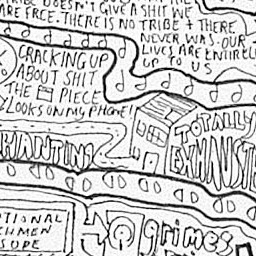 TRIBE DOESN'T GIVE A SHIT WE
ARE FREE. THERE IS NO TRIBE + THERE
NEVER WAS. OUR
LIVES ARE ENTIRELY
UP TO US
CRACKING UP
ABOUT SHIT
THE PIECE
LOOKS ON MY PHONE!
TOTALLY
EXHAUST
HANTING
TIONAL
CHMEN
grimes